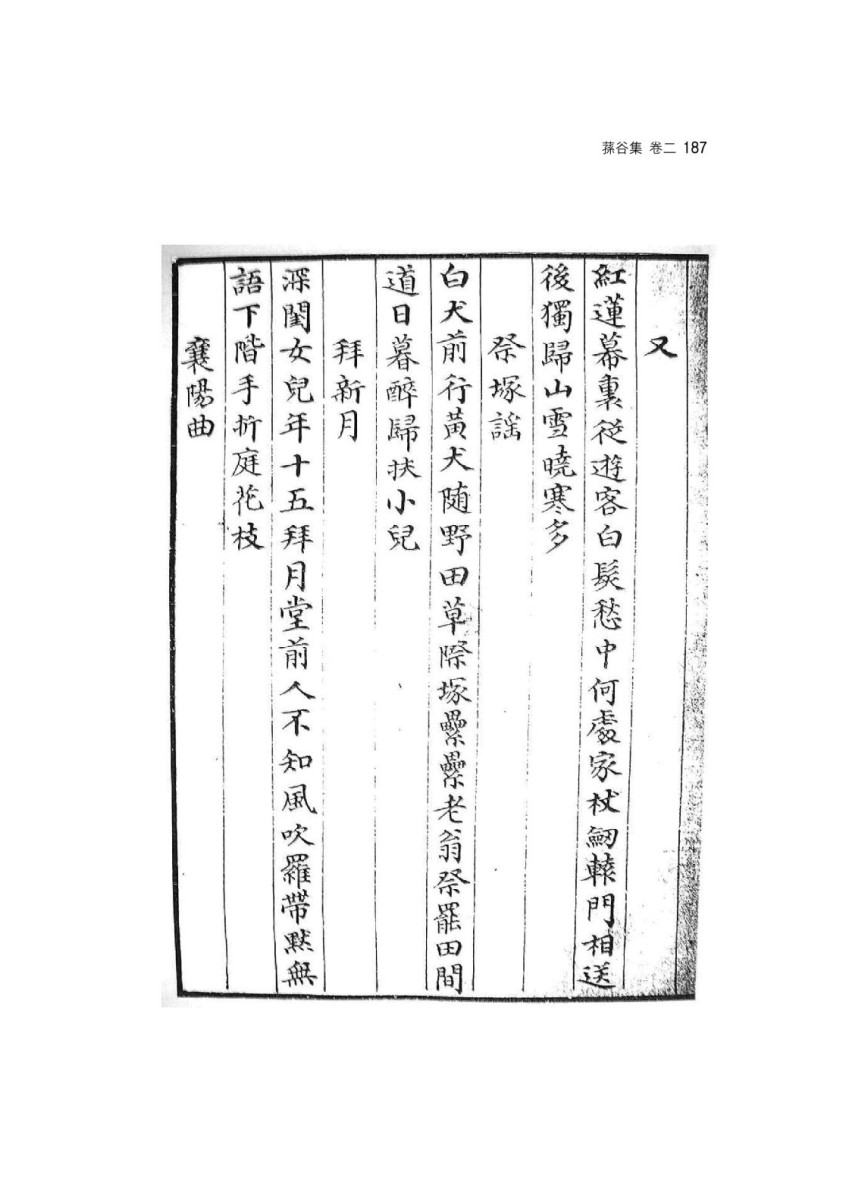 蓀谷集 卷二 187
又
紅蓮幕裏從遊客白髮愁中何處家杖劒轅門相送
後獨歸山雪曉寒多
祭塚謠
白犬前行黃犬随野田草際塚纍纍老翁祭罷田間
道日暮醉歸扶小兒
拜新月
深閨女兒年十五拜月堂前人不知風吹羅帶黙無
語下階手折庭花枝
襄陽曲